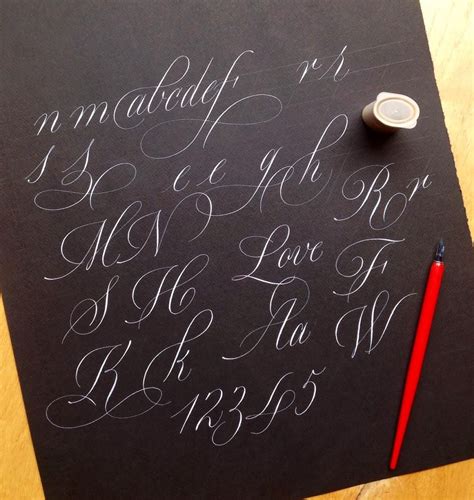 n m abcdef r r
s S e e g h R r
M N Love F
S H Aa W
K k 12345